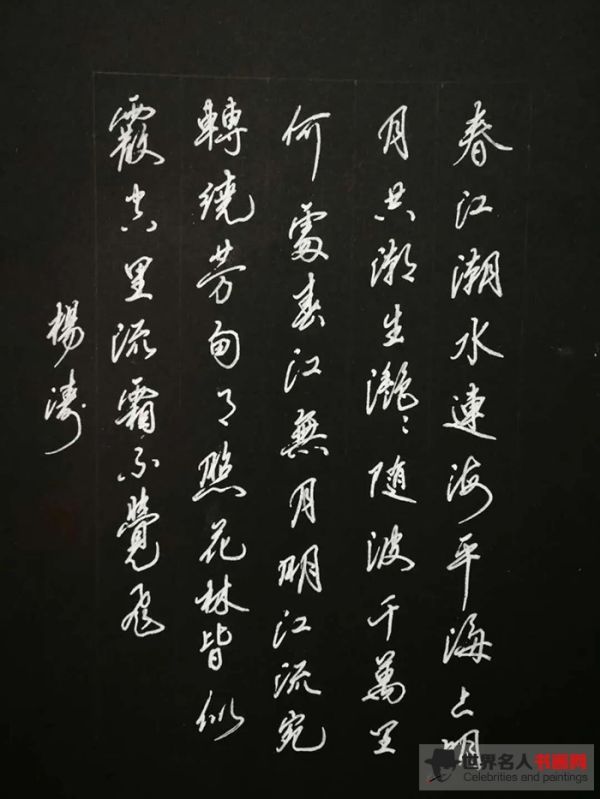 春江潮水連海平海上明
月共潮生灔〻随波千萬里
何處春江無月明江流宛
轉繞芳甸月照花林皆似
霰空里流霜不覺飛
楊濤
世界名人书画网
Celebrities and paintings